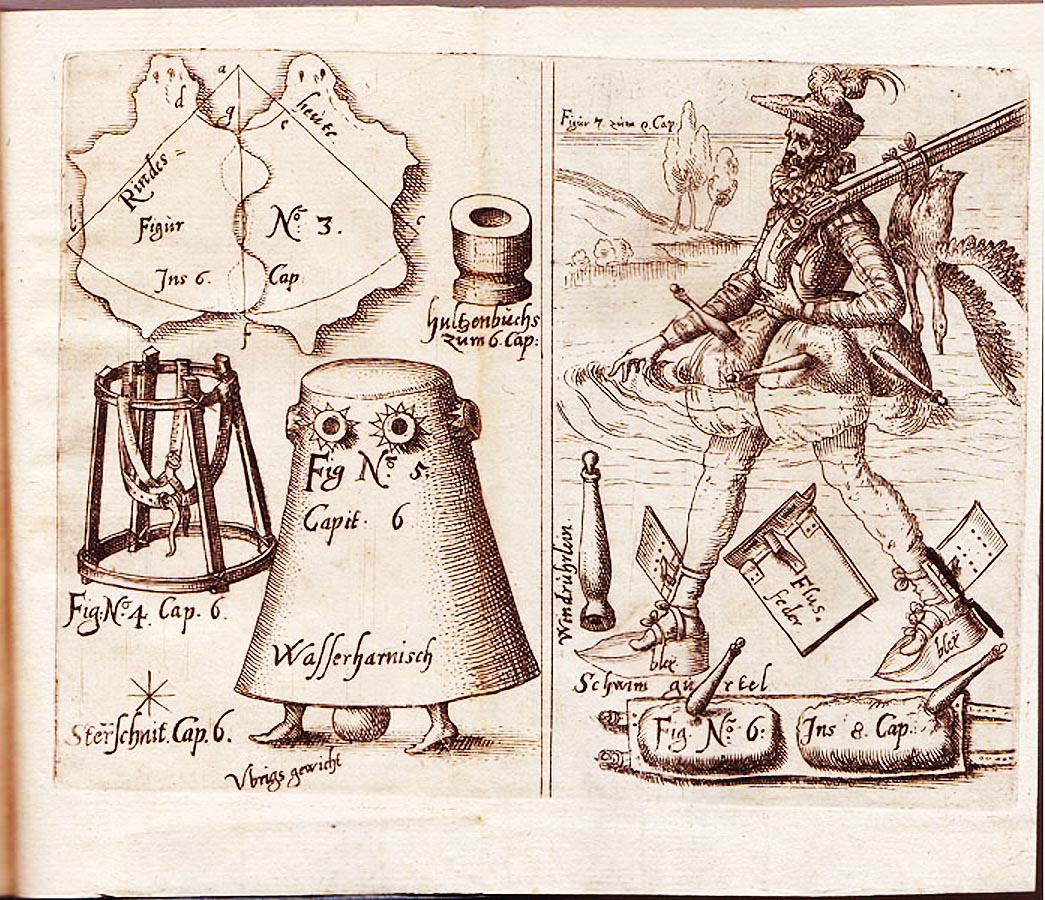 a
d
g
e
heute
Rindes=
Figur
No. 3.
b
c
Ins 6.
Cap
f
hultzenbüchs
zum 6. Cap:
Fig: No. 4. Cap. 6.
Sterschnit. Cap. 6.
Fig No. 5
Capit. 6
Wasserharnisch
Vbrigs gewicht
Figur 7. zum 9 Cap.
Windrührlein
Flus.
feder
blex
blex
Schwim gurtel
Fig. No. 6:
Ins 8. Cap.: